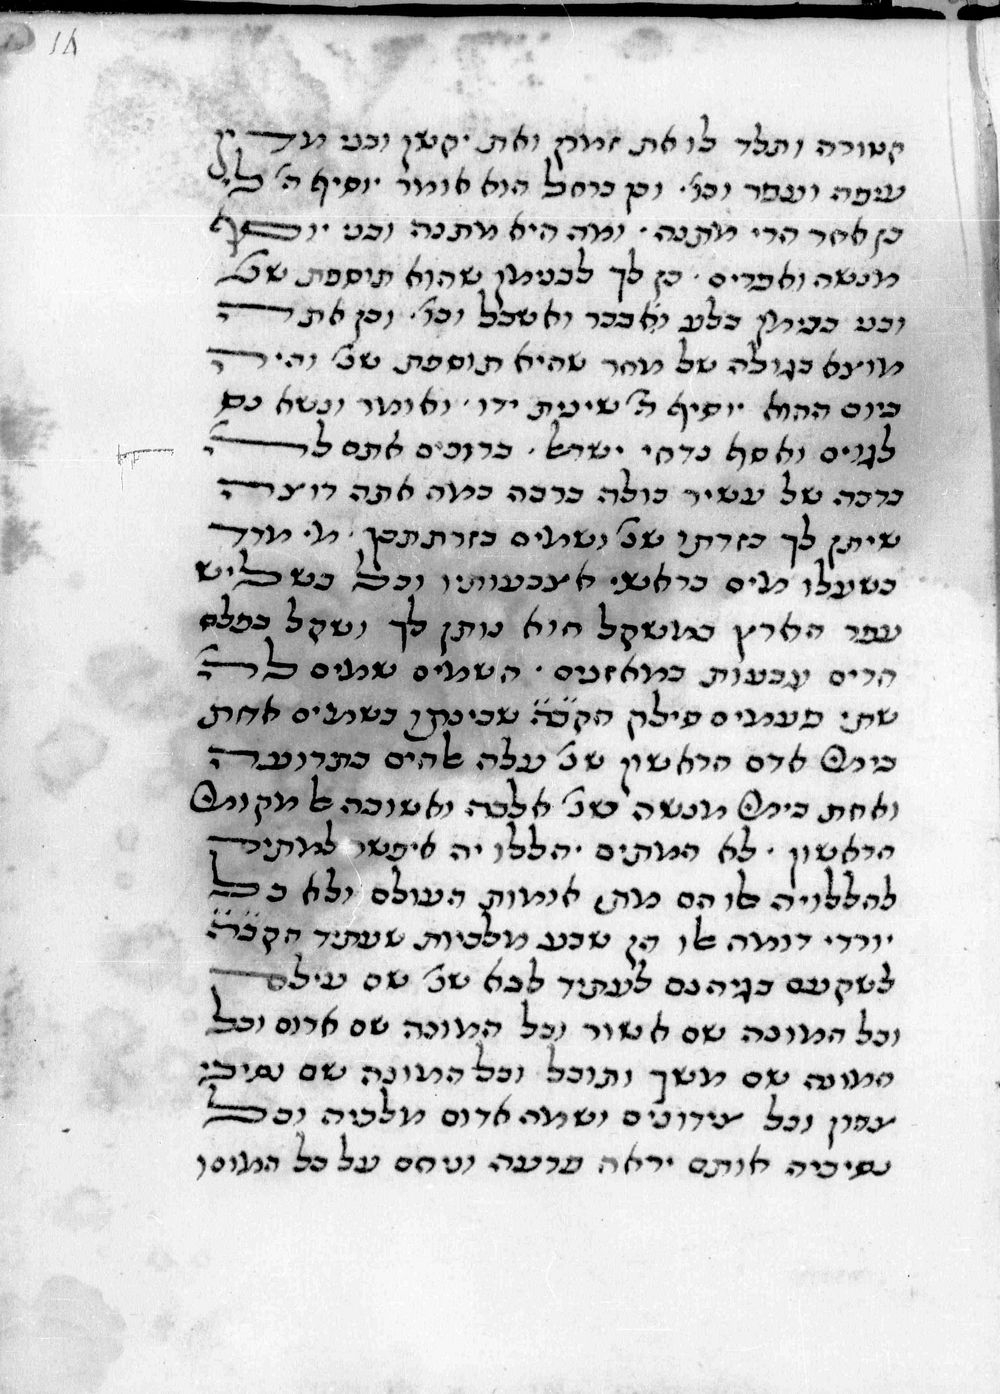 קטורה ותלד לו את זמרן ואת יקשן ובני מדין
עיפה ועפר וכו׳. וכן ברחל הוא אומר יוסיף ה׳ לי
בן אחר הרי מתנה. ומה היא מתנה ובני יוסף
מנשה ואפרים. כן לך לבנימין שהוא תוספת שנ׳
ובני בנימין בלע ובכר ואשבל וכו׳. וכן אתה
מוצא בגולה של מחר שהיא תוספת שנ׳ והיה
ביום ההוא יוסיף ה׳ שינית ידו. ואומר ונשא נס
לגוים ואסף נדחי ישראל. ברוכים אתם לה׳
ברכה של עשיר כולה ברכה כמה אתה רוצה
שיתן לך כזרתו שנ׳ ושמים בזרת תכן. מי מדד
בשעלו מים בראשי אצבעותיו וכל בשליש
עפר הארץ במשקל הוא נותן לך ושקל בפלס
הרים וגבעות במאזנים. השמים שמים לה׳
שתי פעמים סילק הקב״ה שכינתו בשמים אחת
בימי אדם הראשון שנ׳ עלה אלהים בתרועה
ואחת בימי מנשה שנ׳ אלכה ואשובה אל מקומי
הראשון. לא המתים יהללו יה איפשר למתים
להללויה אלו הם מתי אומות העולם ולא כל
יורדי דומה אלו הן שבע מלכיות שעתיד הקב״ה
לשקעם בגיהנם לעתיד לבא שנ׳ שם עילם
וכל המונה שם אשור וכל המונה שם אדום וכל
המונה שם משך ותובל וכל המונה שם נסיכי
צפון וכל צידונים ושמה אדום מלכיה וכל
נסיכיה אותם יראה פרעה וניחם על כל המונו